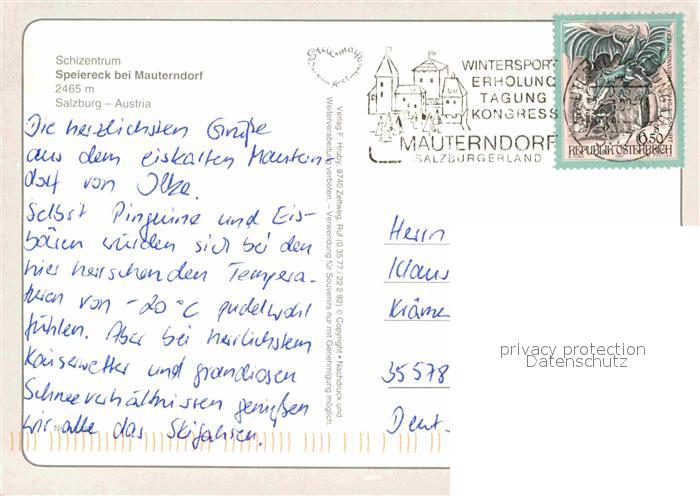 Schizentrum
Speiereck bei Mauterndorf
2465 m
Salzburg – Austria
Die herzlichsten Grüße
aus dem eiskalten Mautern-
dorf von Ilka.
Selbst Pinguine und Eis-
bären würden sich bei den
hier herrschenden Tempera-
turen von -20 °C pudelwohl
fühlen. Aber bei herrlichstem
Kaiserwetter und grandiosen
Schneeverhältnissen genießen
wir alle das Skifahren.
Verlag F. Hruby, 8740 Zeltweg, Ruf (0 35 77 / 22 2 92) © Copyright • Nachdruck und
Weiterverarbeitung verboten. – Verwendung für Souvenirs nur mit Genehmigung möglich.
WINTERSPORT
ERHOLUNG
TAGUNG
KONGRESS
MAUTERNDORF
SALZBURGERLAND
6.50
REPUBLIK ÖSTERREICH
Herrn
Klaus
Kräme
35578
Deut
privacy protection
Datenschutz